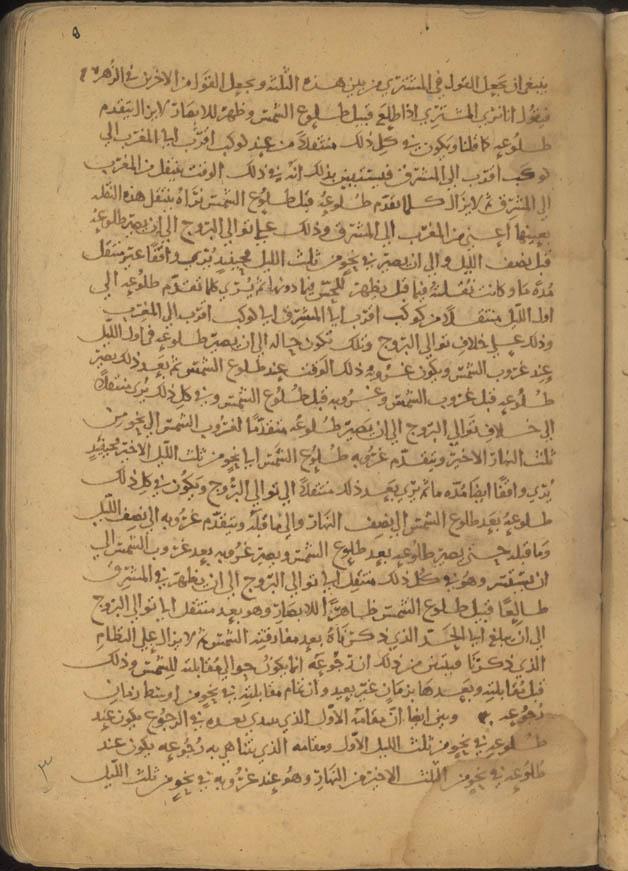 ٥
ينبغي ان نجعل القول في المشتري من بين هذه الثلثة ونجعل القول من الاخرين في الزهرة
فنقول انا نرى المشتري اذا طلع قبيل طلوع الشمس وظهر للابصار لا يزال يتقدم
طلوعه كما قلنا ويكون في كل ذلك منتقلا من عند كوكب اقرب الى المغرب الى
كوكب اقرب الى المشرق فيستبين بذلك انه في ذلك الوقت ينتقل من المغرب
الى المشرق ثم لا يزال كلما تقدم طلوعه قبل طلوع الشمس نراه ينتقل هذه النقلة
بعينها اعني من المغرب الى المشرق وذلك على توالي البروج الى ان يصير طلوعه
قبل نصف الليل والى ان يصير في نحو من ثلث الليل فحينئذ يرى واقفا غير منتقل
مدة ما وكانت نقلته فيما قبل يظهر للحس فيما دونها ثم يرى كلما تقدم طلوعه الى
اول الليل منتقلا من كوكب اقرب الى المشرق الى كوكب اقرب الى المغرب
وذلك على خلاف توالي البروج وتلك تكون حاله الى ان يصير طلوعه في اول الليل
وعند غروب الشمس ويكون غروبه في ذلك الوقت عند طلوع الشمس ثم بعد ذلك يصير
طلوعه قبل غروب الشمس وغروبه قبل طلوع الشمس وفي كل ذلك يرى منتقلا
الى خلاف توالي البروج الى ان يصير طلوعه متقدما لغروب الشمس الى نحو من
ثلث النهار الاخير ويتقدم غروبه طلوع الشمس الى نحو من ثلث الليل الاخير فحينئذ
يرى واقفا ايضا مدة ما ثم يرى بعد ذلك منتقلا الى توالي البروج ويكون في كل ذلك
طلوعه بعد طلوع الشمس الى نصف النهار والى ما قبله ويتقدم غروبه الى نصف الليل
وما قبله حتى يصير طلوعه بعد طلوع الشمس ويصير غروبه بعد غروب الشمس الى
ان يستتر وهو في كل ذلك منتقل الى توالي البروج الى ان يظهر في المشرق
طالعا قبيل طلوع الشمس ظاهرا للابصار وهو بعد منتقل الى توالي البروج
الى ان يبلغ الى الحد الذي ذكرناه بعد مفارقته الشمس ثم لا يزال على النظام
الذي ذكرنا فيتبين من ذلك ان رجوعه انما يكون حوالى مقابلته للشمس وذلك
قبل مقابلته وبعدها بزمان غير بعيد وان تمام مقابلته في نحو من اوسط زمان
رجوعه وبين ايضا ان مقامه الاول الذي يبتدئ بعده في الرجوع يكون عند
طلوعه في نحو من ثلث الليل الاول ومقامه الذي يتناهى به رجوعه يكون عند
طلوعه في نحو من الثلث الاخير من النهار وهو عند غروبه في نحو من ثلث الليل
٣